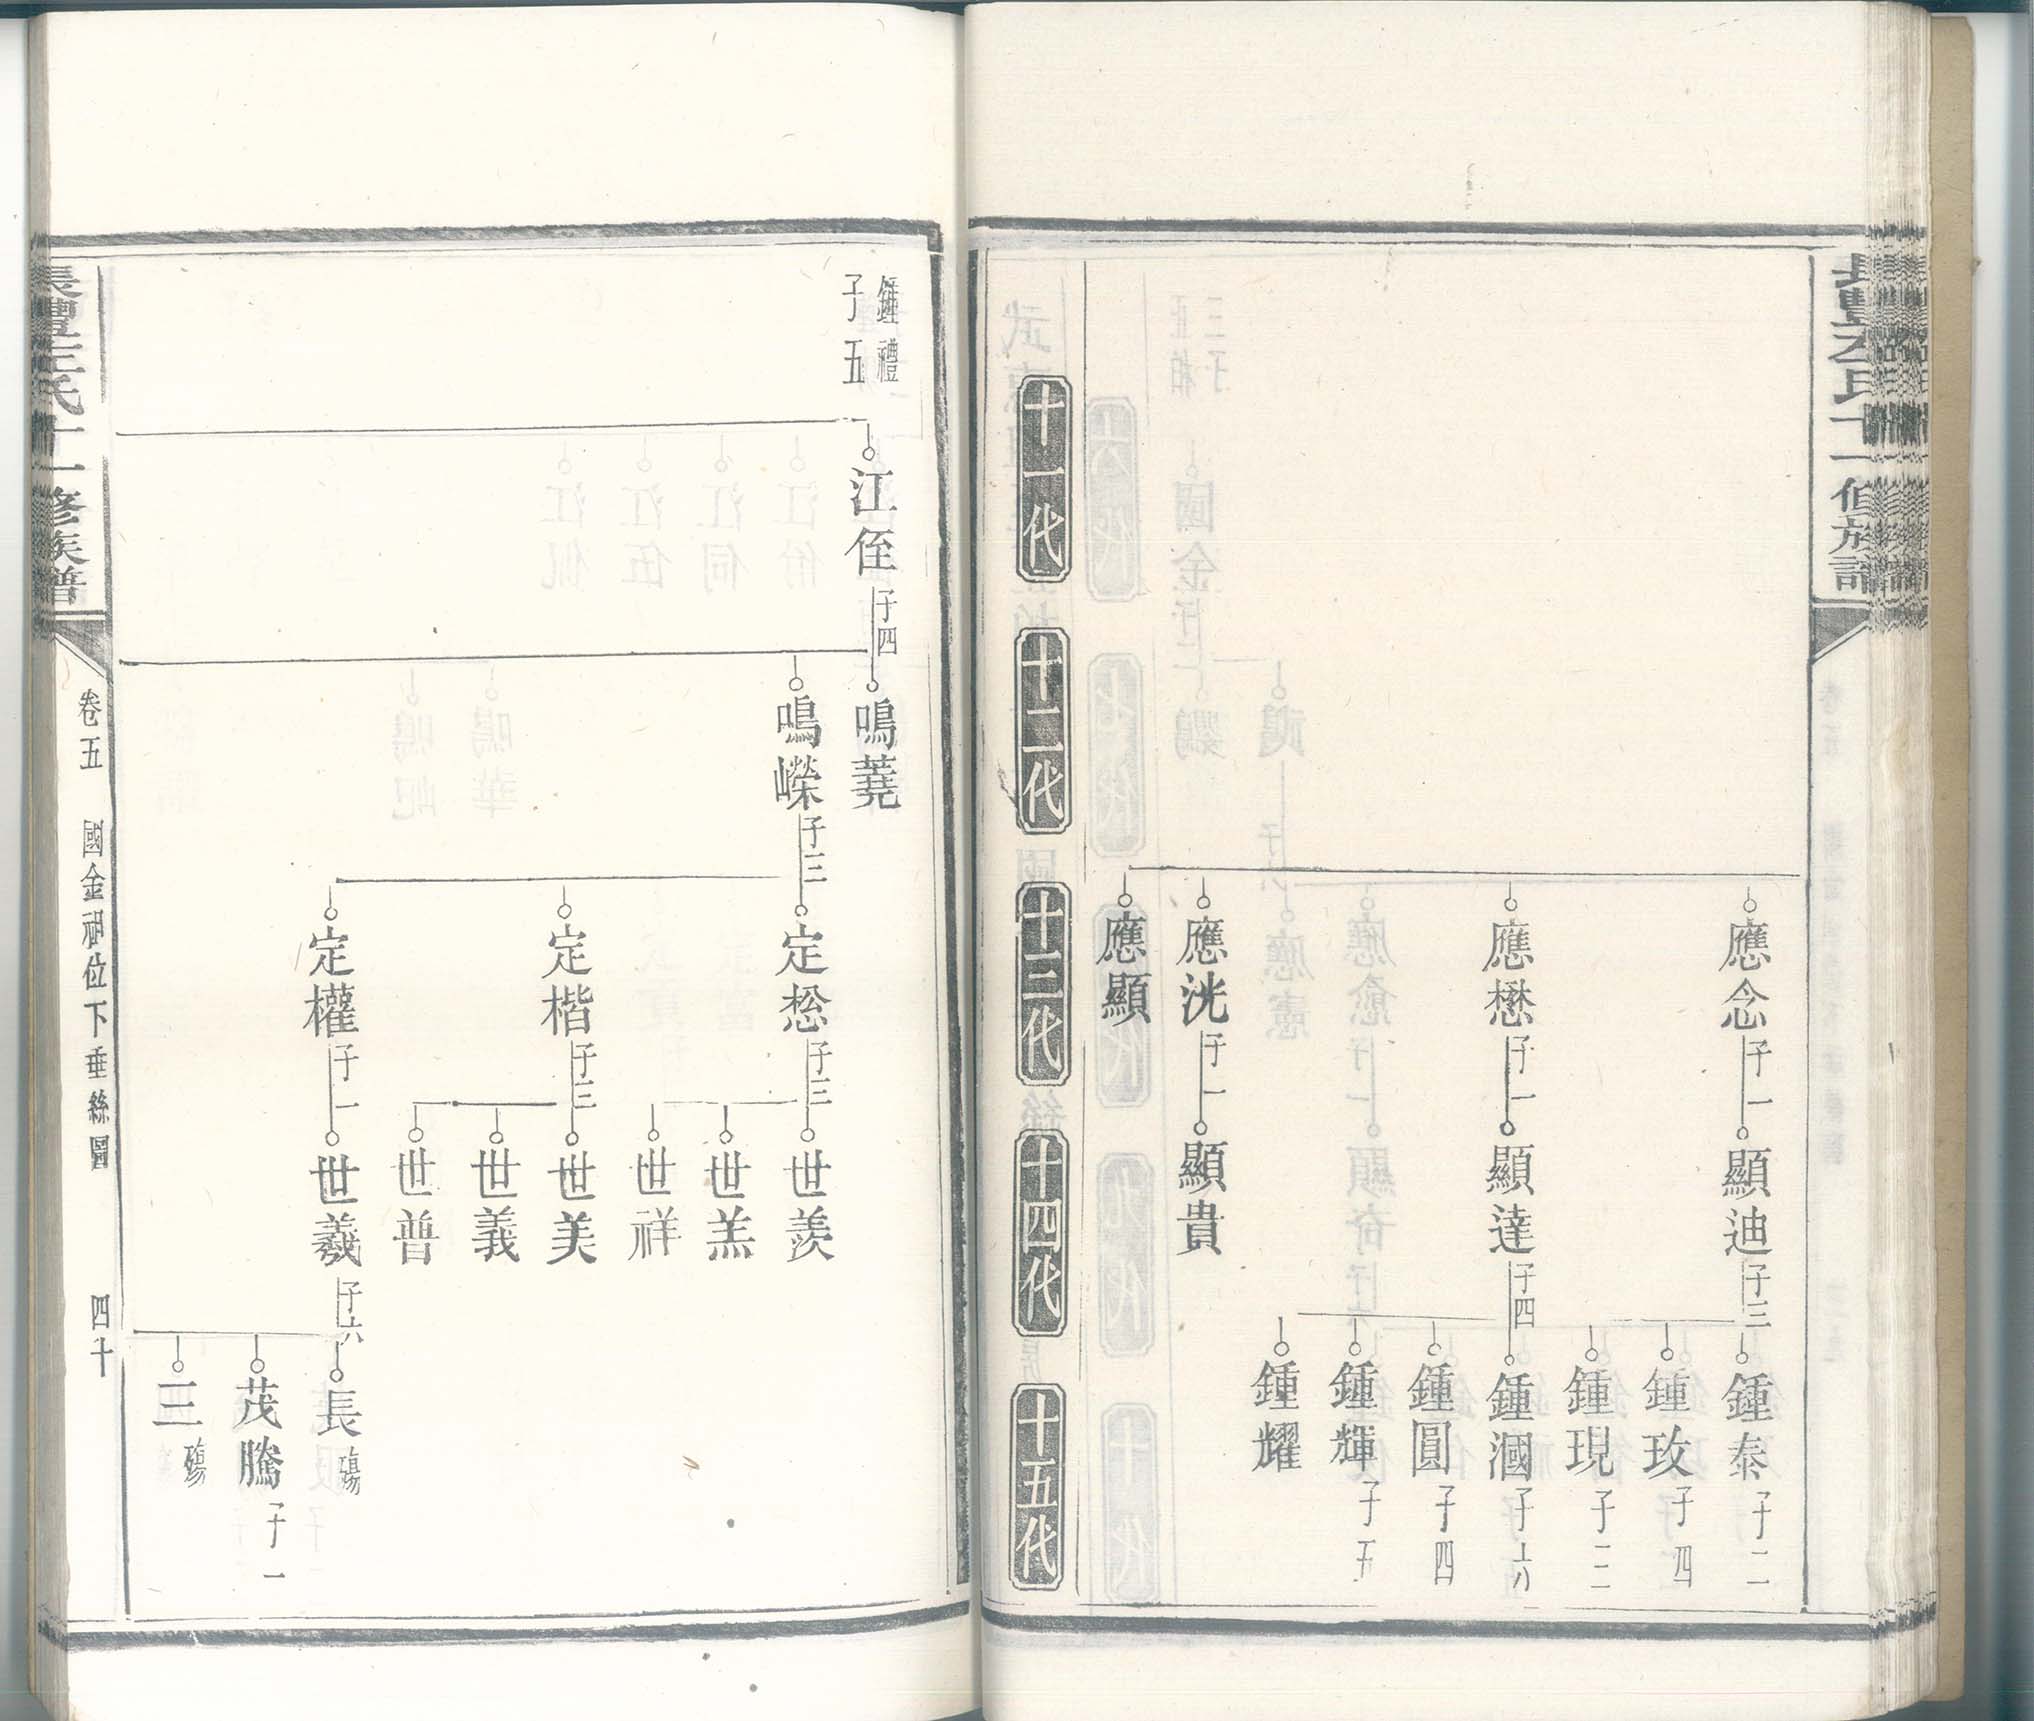 應念
子一
顯迪
子三
鍾泰
子二
鍾玫
子四
鍾現
子二
應懋
子一
顯達
子四
鍾漍
子六
鍾圓
子四
鍾輝
子五
鍾耀
應洸
子一
顯貴
應顯
十一代
十二代
十三代
十四代
十五代
鍾禮
子五
江侄
子四
鳴蕘
鳴嶸
子三
定棇
子三
世羨
世羔
世祥
定楷
子三
世美
世義
世普
定權
子一
世羲
子六
長
殤
茂騰
子一
三
殤
氏十一修族譜
卷五
國金祖位下垂絲圖
四十